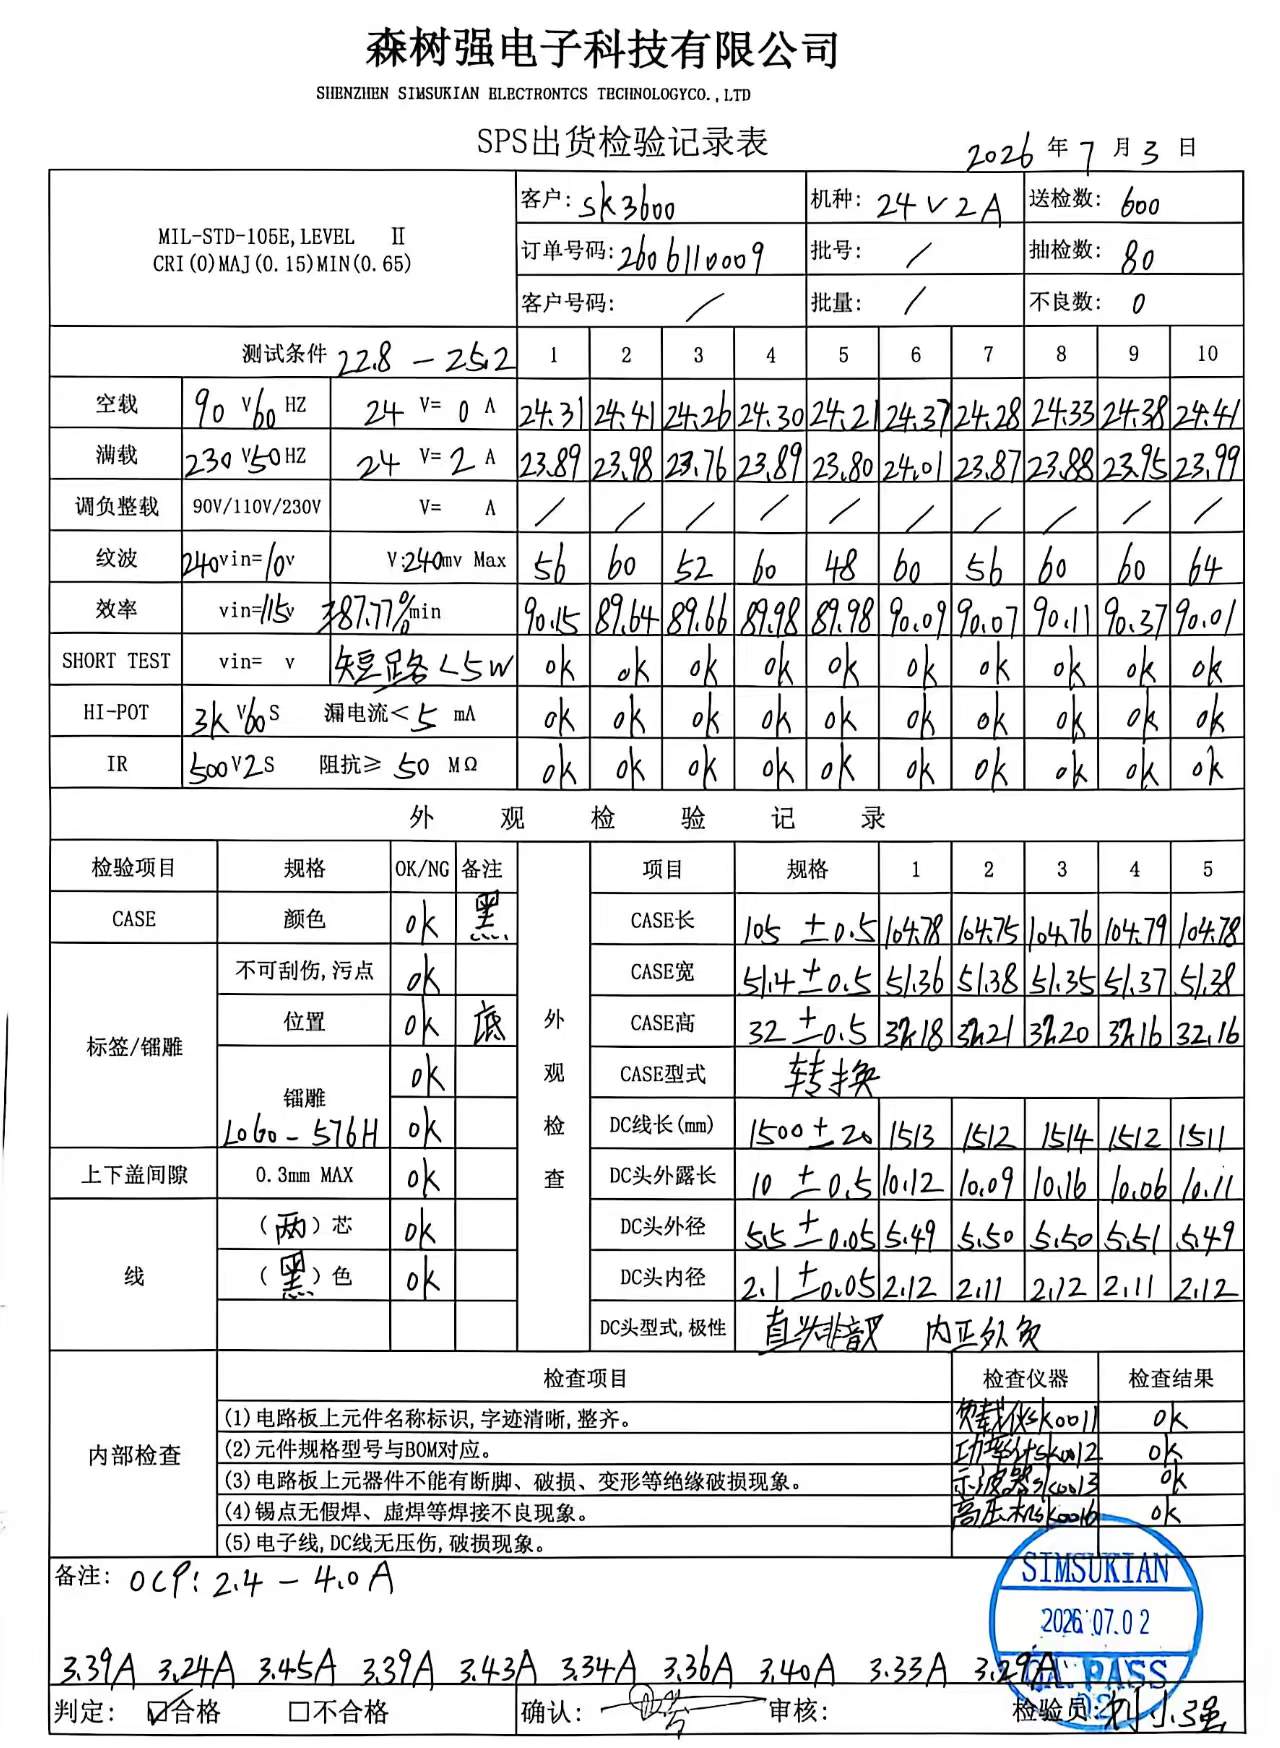 森树强电子科技有限公司
SHENZHEN SIMSUKIAN ELECTRONTCS TECHNOLOGYCO.,LTD
SPS出货检验记录表
2026 年 7 月 3 日
MIL-STD-105E,LEVEL Ⅱ
CRI(0)MAJ(0.15)MIN(0.65)
客户: SK3600 机种: 24V2A 送检数: 600
订单号码: 2606110009 批号: / 抽检数: 80
客户号码: / 批量: / 不良数: 0
测试条件 22.8 - 25.2 1 2 3 4 5 6 7 8 9 10
空载 90 V 60 HZ 24 V= 0 A 24.31 24.41 24.26 24.30 24.21 24.37 24.28 24.33 24.38 24.41
满载 230 V 50 HZ 24 V= 2 A 23.89 23.98 23.76 23.89 23.80 24.01 23.87 23.88 23.95 23.99
调负整载 90V/110V/230V V= A / / / / / / / / / /
纹波 240vin=10v V:240mv Max 56 60 52 60 48 60 56 60 60 64
效率 vin=115v 87.77% min 90.15 89.64 89.66 89.98 89.98 90.09 90.07 90.11 90.37 90.01
SHORT TEST vin= v 短路<5W ok ok ok ok ok ok ok ok ok ok
HI-POT 3k V 60 S 漏电流< 5 mA ok ok ok ok ok ok ok ok ok ok
IR 500 V 2 S 阻抗≥ 50 MΩ ok ok ok ok ok ok ok ok ok ok
外观检验记录
检验项目 规格 OK/NG 备注 项目 规格 1 2 3 4 5
CASE 颜色 ok 黑 CASE长 105 ±0.5 104.78 104.75 104.76 104.79 104.78
标签/镭雕 不可刮伤,污点 ok CASE宽 51.4±0.5 51.36 51.38 51.35 51.37 51.38
位置 ok 底 外观检查 CASE高 32 ±0.5 32.18 32.21 32.20 32.16 32.16
镭雕 ok CASE型式 转换
LOGO-576H ok DC线长(mm) 1500±20 1513 1512 1514 1512 1511
上下盖间隙 0.3mm MAX ok DC头外露长 10 ±0.5 10.12 10.09 10.16 10.06 10.11
线 (两)芯 ok DC头外径 5.5±0.05 5.49 5.50 5.50 5.51 5.49
(黑)色 ok DC头内径 2.1±0.05 2.12 2.11 2.12 2.11 2.12
DC头型式,极性 直头非音叉 内正外负
内部检查 检查项目 检查仪器 检查结果
(1)电路板上元件名称标识,字迹清晰,整齐。 负载仪SK0011 ok
(2)元件规格型号与BOM对应。 功率计SK0012 ok
(3)电路板上元器件不能有断脚、破损、变形等绝缘破损现象。 示波器SK0013 ok
(4)锡点无假焊、虚焊等焊接不良现象。 高压机SK0016 ok
(5)电子线,DC线无压伤,破损现象。
备注: OCP: 2.4 - 4.0A
SIMSUKIAN
2026.07.02
QA.PASS
02
3.39A 3.24A 3.45A 3.39A 3.43A 3.34A 3.36A 3.40A 3.33A 3.29A
判定: ☑合格 □不合格 确认: 审核: 检验员: 刘小强